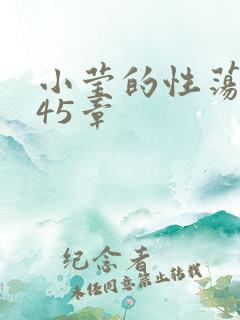 小莹的性荡
45章
纪念者
未经同意禁止转载